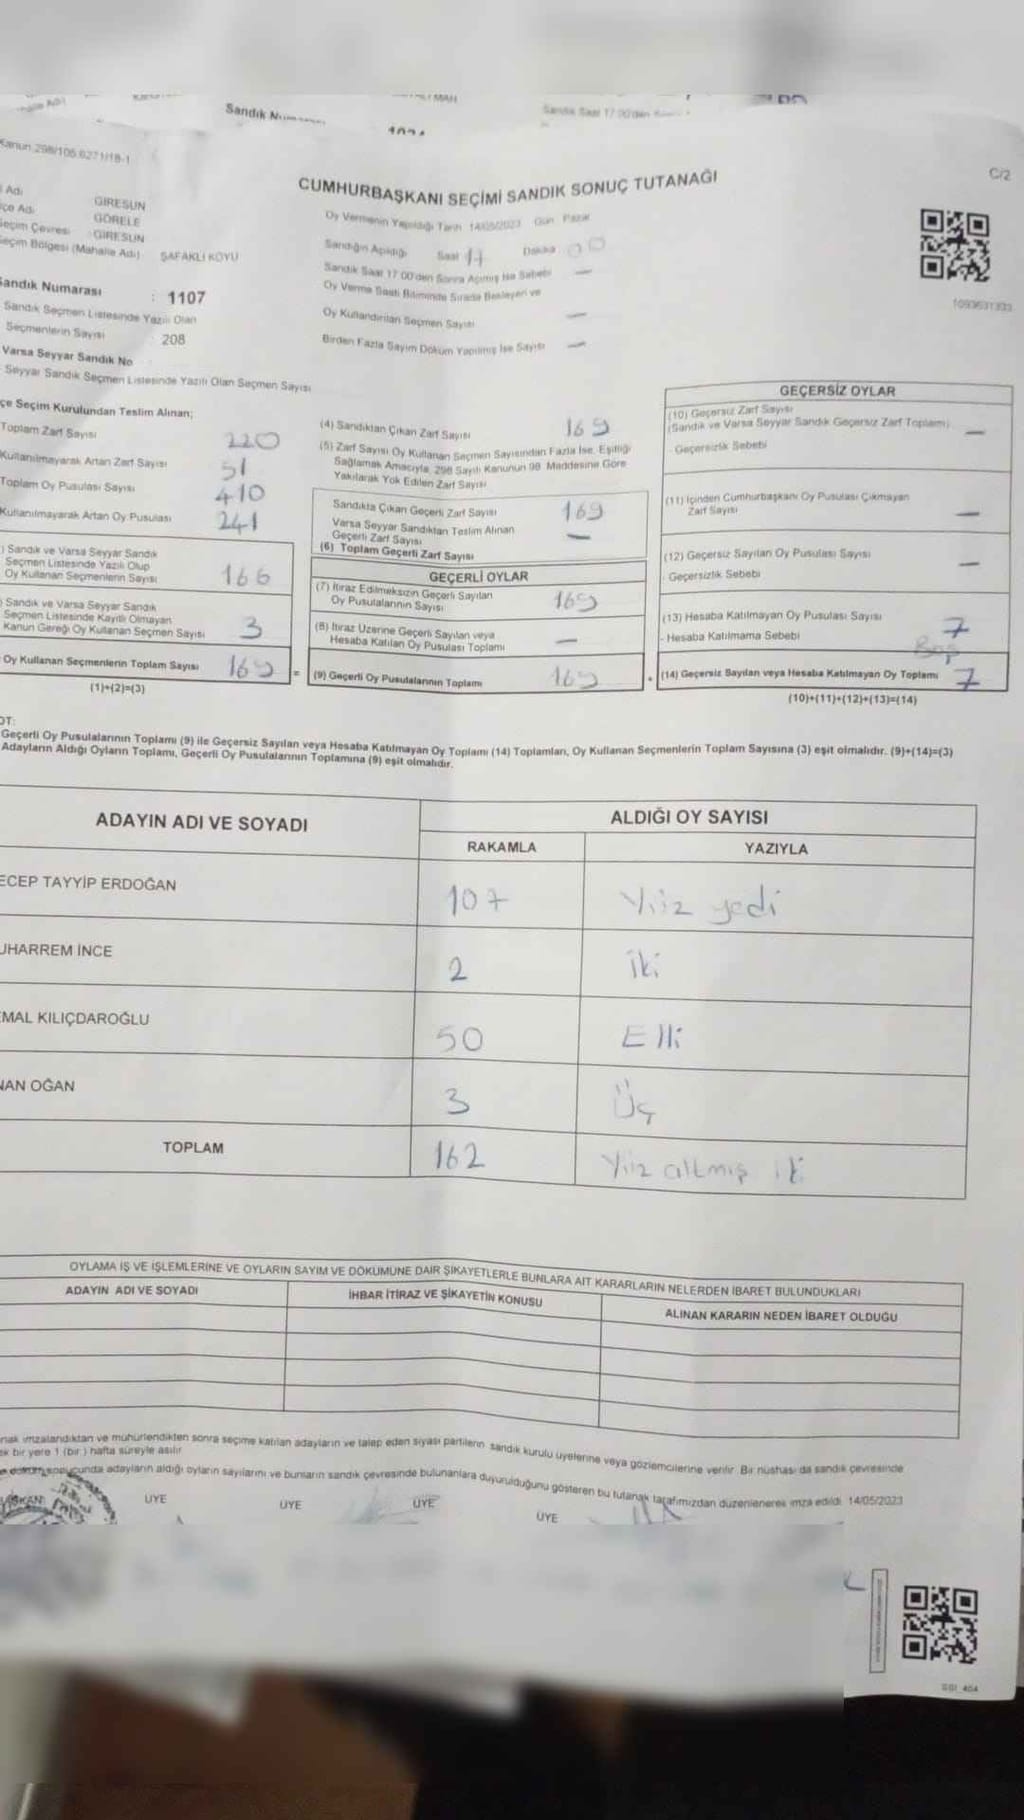 Sandık
Kanun 298/106 6271/18-1
C/2
CUMHURBAŞKANI SEÇİMİ SANDIK SONUÇ TUTANAĞI
Adı GİRESUN
çe Adı GÖRELE
Seçim Çevresi GİRESUN
Seçim Bölgesi (Mahalle Adı) ŞAFAKLI KÖYÜ
Oy Vermenin Yapıldığı Tarih 14/05/2023 Gün Pazar
Sandığın Açıldığı Saat 17 Dakika 00
Sandık Saat 17 00'den Sonra Açılmış İse Sebebi —
Oy Verme Saati Bitiminde Sırada Bekleyen ve
Oy Kullandırılan Seçmen Sayısı —
Birden Fazla Sayım Döküm Yapılmış İse Sayısı —
1093631333
Sandık Numarası : 1107
Sandık Seçmen Listesinde Yazılı Olan
Seçmenlerin Sayısı : 208
Varsa Seyyar Sandık No
Seyyar Sandık Seçmen Listesinde Yazılı Olan Seçmen Sayısı
çe Seçim Kurulundan Teslim Alınan;
Toplam Zarf Sayısı 220
Kullanılmayarak Artan Zarf Sayısı 51
Toplam Oy Pusulası Sayısı 410
Kullanılmayarak Artan Oy Pusulası 241
) Sandık ve Varsa Seyyar Sandık
Seçmen Listesinde Yazılı Olup
Oy Kullanan Seçmenlerin Sayısı 166
) Sandık ve Varsa Seyyar Sandık
Seçmen Listesinde Kayıtlı Olmayan
Kanun Gereği Oy Kullanan Seçmen Sayısı 3
Oy Kullanan Seçmenlerin Toplam Sayısı 169 =
(1)+(2)=(3)
(4) Sandıktan Çıkan Zarf Sayısı 169
(5) Zarf Sayısı Oy Kullanan Seçmen Sayısından Fazla İse, Eşitliği
Sağlamak Amacıyla, 298 Sayılı Kanunun 98. Maddesine Göre
Yakılarak Yok Edilen Zarf Sayısı
Sandıkta Çıkan Geçerli Zarf Sayısı 169
Varsa Seyyar Sandıktan Teslim Alınan
Geçerli Zarf Sayısı —
(6) Toplam Geçerli Zarf Sayısı
GEÇERLİ OYLAR
(7) İtiraz Edilmeksizin Geçerli Sayılan
Oy Pusulalarının Sayısı 169
(8) İtiraz Üzerine Geçerli Sayılan veya
Hesaba Katılan Oy Pusulası Toplamı —
(9) Geçerli Oy Pusulalarının Toplamı 169
GEÇERSİZ OYLAR
(10) Geçersiz Zarf Sayısı
(Sandık ve Varsa Seyyar Sandık Geçersiz Zarf Toplamı) —
- Geçersizlik Sebebi
(11) İçinden Cumhurbaşkanı Oy Pusulası Çıkmayan
Zarf Sayısı —
(12) Geçersiz Sayılan Oy Pusulası Sayısı —
- Geçersizlik Sebebi
(13) Hesaba Katılmayan Oy Pusulası Sayısı 7
- Hesaba Katılmama Sebebi Boş
(14) Geçersiz Sayılan veya Hesaba Katılmayan Oy Toplamı 7
(10)+(11)+(12)+(13)=(14)
OT:
Geçerli Oy Pusulalarının Toplamı (9) ile Geçersiz Sayılan veya Hesaba Katılmayan Oy Toplamı (14) Toplamları, Oy Kullanan Seçmenlerin Toplam Sayısına (3) eşit olmalıdır. (9)+(14)=(3)
Adayların Aldığı Oyların Toplamı, Geçerli Oy Pusulalarının Toplamına (9) eşit olmalıdır.
ADAYIN ADI VE SOYADI ALDIĞI OY SAYISI
RAKAMLA YAZIYLA
ECEP TAYYİP ERDOĞAN 107 Yüz yedi
UHARREM İNCE 2 İki
EMAL KILIÇDAROĞLU 50 Elli
NAN OĞAN 3 Üç
TOPLAM 162 Yüz altmış iki
OYLAMA İŞ VE İŞLEMLERİNE VE OYLARIN SAYIM VE DÖKÜMÜNE DAİR ŞİKAYETLERLE BUNLARA AİT KARARLARIN NELERDEN İBARET BULUNDUKLARI
ADAYIN ADI VE SOYADI İHBAR İTİRAZ VE ŞİKAYETİN KONUSU ALINAN KARARIN NEDEN İBARET OLDUĞU
nak imzalandıktan ve mühürlendikten sonra seçime katılan adayların ve talep eden siyasi partilerin sandık kurulu üyelerine veya gözlemcilerine verilir. Bir nüshası da sandık çevresinde
ek bir yere 1 (bir) hafta süreyle asılır
döküm sonucunda adayların aldığı oyların sayılarını ve bunların sandık çevresinde bulunanlara duyurulduğunu gösteren bu tutanak tarafımızdan düzenlenerek imza edildi. 14/05/2023
ÜYE ÜYE ÜYE ÜYE